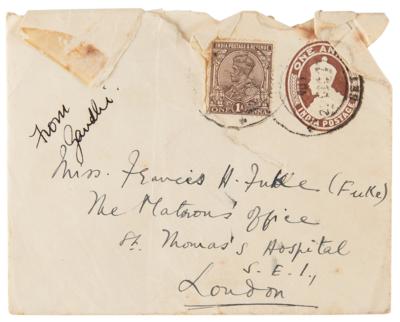 INDIA POSTAGE & REVENUE
ONE 1A ANNA
ONE ANNA
INDIA POSTAGE
from
Gandhi.
Miss. Frances H. Fuke (Fuke)
The Matron's Office
St. Thomas's Hospital
S.E.1.,
London